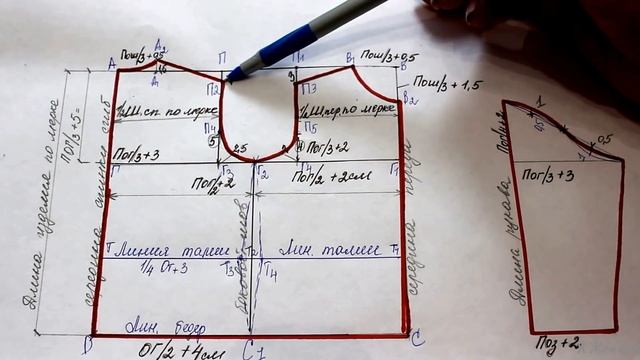 Пош/3+0,5
А2
П
П1
В1
Пош/3+0,5
А
В
1,5
А1
П2
9
П3
Пош/3+1,5
В2
1
½ Ш.сп. по мерке
½ Ш.пер. по мерке
0,5
П4
П5
5
2,5
Пог/3+3
Пог/3+2
0,5
Г
Г3
Г2
Г4
Г1
Пог/3+3
Пог/2+2
Пог/2+2см
Длина изделия по мерке
Поп/3+5=
середина спинки сгиб
боковой шов
середина переда
Длина рукава
Т
Линия талии
Т2
Лин. талии
Т1
¼ От+3
Т3
Т4
Лин. бедер
Поз+2
С
С1
ОГ/2+4см